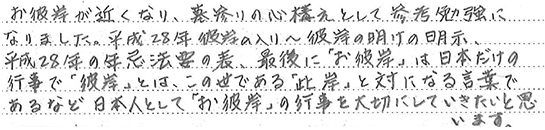 お彼岸が近くなり、墓参りの心構えとして参考勉強に
なりました。平成28年彼岸の入り～彼岸の明けの明示、
平成28年の年忌法要の表、最後に「お彼岸」は日本だけの
行事で「彼岸」とは、この世である「此岸」と対になる言葉で
あるなど日本人として「お彼岸」の行事を大切にしていきたいと思
います。